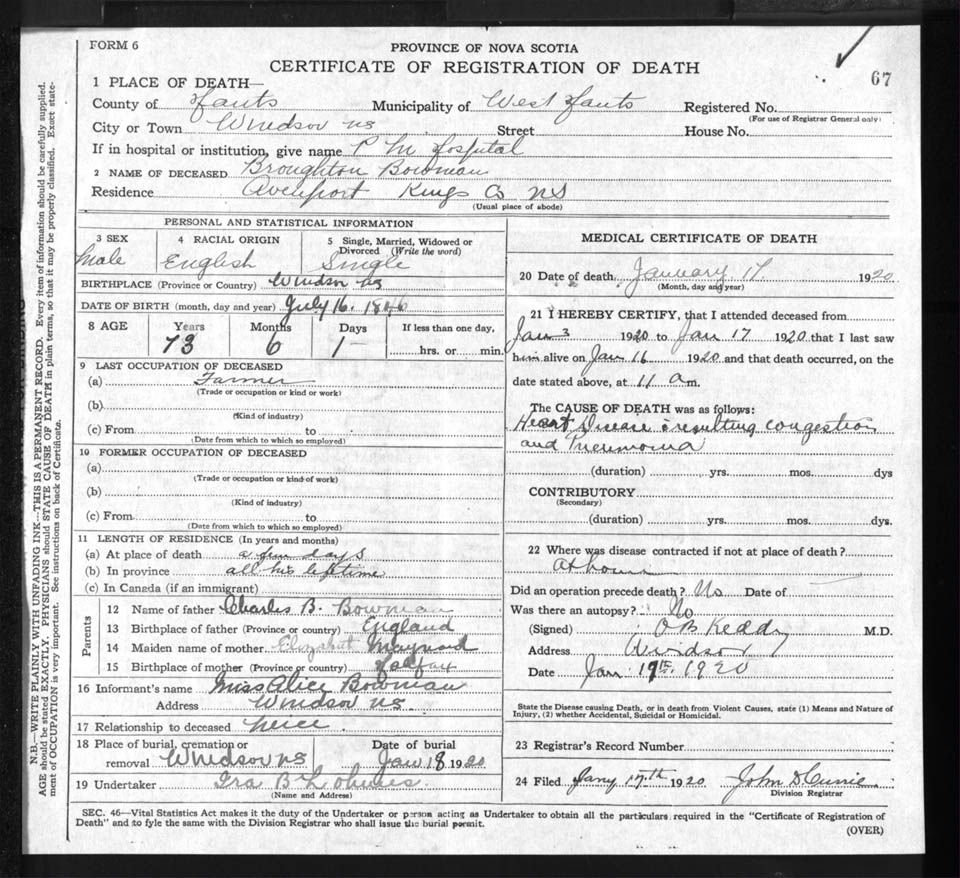 FORM 6
PROVINCE OF NOVA SCOTIA
CERTIFICATE OF REGISTRATION OF DEATH
67
1 PLACE OF DEATH—
County of Hants Municipality of West Hants Registered No.
(For use of Registrar General only)
City or Town Windsor NS Street House No.
If in hospital or institution, give name P M Hospital
2 NAME OF DECEASED Broughton Bowman
Residence Avonport Kings Co NS
(Usual place of abode)
PERSONAL AND STATISTICAL INFORMATION
3 SEX Male
4 RACIAL ORIGIN English
5 Single, Married, Widowed or Divorced (Write the word) Single
BIRTHPLACE (Province or Country) Windsor NS
DATE OF BIRTH (month, day and year) July 16. 1846
8 AGE Years 73 Months 6 Days 1 If less than one day, hrs. or min.
9 LAST OCCUPATION OF DECEASED
(a) Farmer
(Trade or occupation or kind or work)
(b)
(Kind of industry)
(c) From to
(Date from which to which so employed)
10 FORMER OCCUPATION OF DECEASED
(a)
(Trade or occupation or kind of work)
(b)
(Kind of industry)
(c) From to
(Date from which to which so employed)
11 LENGTH OF RESIDENCE (In years and months)
(a) At place of death a few days
(b) In province all his lifetime
(c) In Canada (if an immigrant)
Parents
12 Name of father Charles B. Bowman
13 Birthplace of father (Province or country) England
14 Maiden name of mother Elizabeth Maynard
15 Birthplace of mother (Province or country) Halifax
16 Informant's name Miss Alice Bowman
Address Windsor NS.
17 Relationship to deceased neice
18 Place of burial, cremation or removal Windsor NS Date of burial Jan 18 1920
19 Undertaker Ira B
(Name and Address)
MEDICAL CERTIFICATE OF DEATH
20 Date of death January 17 1920
(Month, day and year)
21 I HEREBY CERTIFY, that I attended deceased from
Jan 3 1920 to Jan 17 1920 that I last saw
him alive on Jan 16 1920 and that death occurred, on the
date stated above, at 11 a m.
The CAUSE OF DEATH was as follows:
Heart Disease resulting congestion
and Pneumonia
(duration) yrs. mos. dys
CONTRIBUTORY
(Secondary)
(duration) yrs. mos. dys.
22 Where was disease contracted if not at place of death?
at home
Did an operation precede death? No Date of
Was there an autopsy? No
(Signed) O B Keddy M.D.
Address Windsor
Date Jan 17th 1920
State the Disease causing Death, or in death from Violent Causes, state (1) Means and Nature of
Injury, (2) whether Accidental, Suicidal or Homicidal.
23 Registrar's Record Number
24 Filed Jany 17th 1920 John
Division Registrar
SEC. 46—Vital Statistics Act makes it the duty of the Undertaker or person acting as Undertaker to obtain all the particulars required in the "Certificate of Registration of
Death" and to fyle the same with the Division Registrar who shall issue the burial permit.
(OVER)
N.B.—WRITE PLAINLY WITH UNFADING INK—THIS IS A PERMANENT RECORD. Every item of information should be carefully supplied.
AGE should be stated EXACTLY. PHYSICIANS should STATE CAUSE OF DEATH in plain terms, so that it may be properly classified. Exact state-
ment of OCCUPATION is very important. See instructions on back of Certificate.